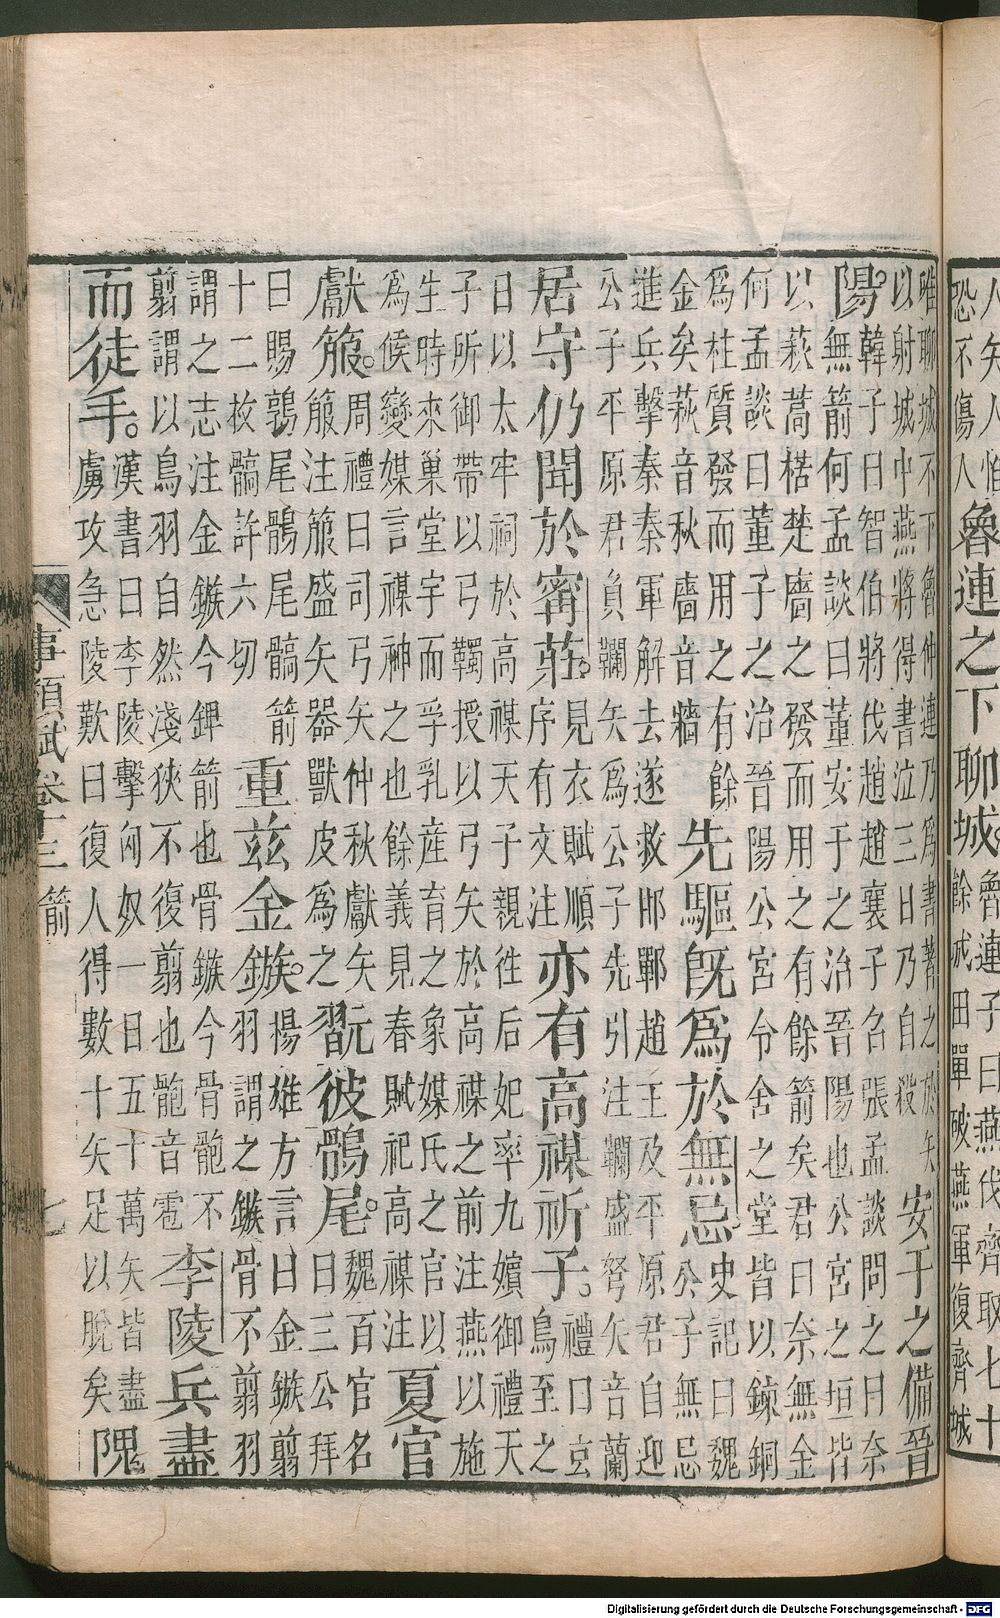 人矢人惟
恐不傷人
魯連之下聊城
魯連子曰燕伐齊取七十
餘城田單破燕軍復齊城
唯聊城不下魯仲連乃爲書著之於矢
以射城中燕將得書泣三日乃自殺
安于之備晉
陽。
韓子曰智伯將伐趙趙襄子召張孟談問之曰奈
無箭何孟談曰董安于之治晉陽也公宮之垣皆
以萩蒿楛楚廧之發而用之有餘箭矣君曰奈無金
何孟談曰董子之治晉陽公宮令舍之堂皆以鍊銅
爲柱質發而用之有餘
金矣萩音秋廧音牆
先驅旣爲於無忌。
史記曰魏
公子無忌
進兵擊秦秦軍解去遂救邯鄲趙王及平原君自迎
公子平原君負韊矢爲公子先引注韊盛弩矢音蘭
居守仍聞於甯莊。
見衣賦順
序有文注
亦有高禖祈子。
禮曰玄
鳥至之
日以太牢祠於高禖天子親往后妃率九嬪御禮天
子所御帶以弓韣授以弓矢於高禖之前注燕以施
生時來巢堂宇而孚乳產育之象媒氏之官以
爲候變媒言禖神之也餘義見春賦祀高禖注
夏官
獻箙。
周禮曰司弓矢仲秋獻矢
箙注箙盛矢器獸皮爲之
翫彼鶻尾。
魏百官名
曰三公拜
曰賜鶉尾鶻尾髇箭
十二枚髇許六切
重兹金鏃。
揚雄方言曰金鏃翦
羽謂之鏃骨不翦羽
謂之志注金鏃今錍箭也骨鏃今骨骲不
翦謂以鳥羽自然淺狹不復翦也骲音雹
李陵兵盡
而徒手。
漢書曰李陵擊匈奴一日五十萬矢皆盡
虜攻急陵歎曰復人得數十矢足以脫矣
隗
事類賦卷十三 箭 七
Digitalisierung gefördert durch die Deutsche Forschungsgemeinschaft - DFG